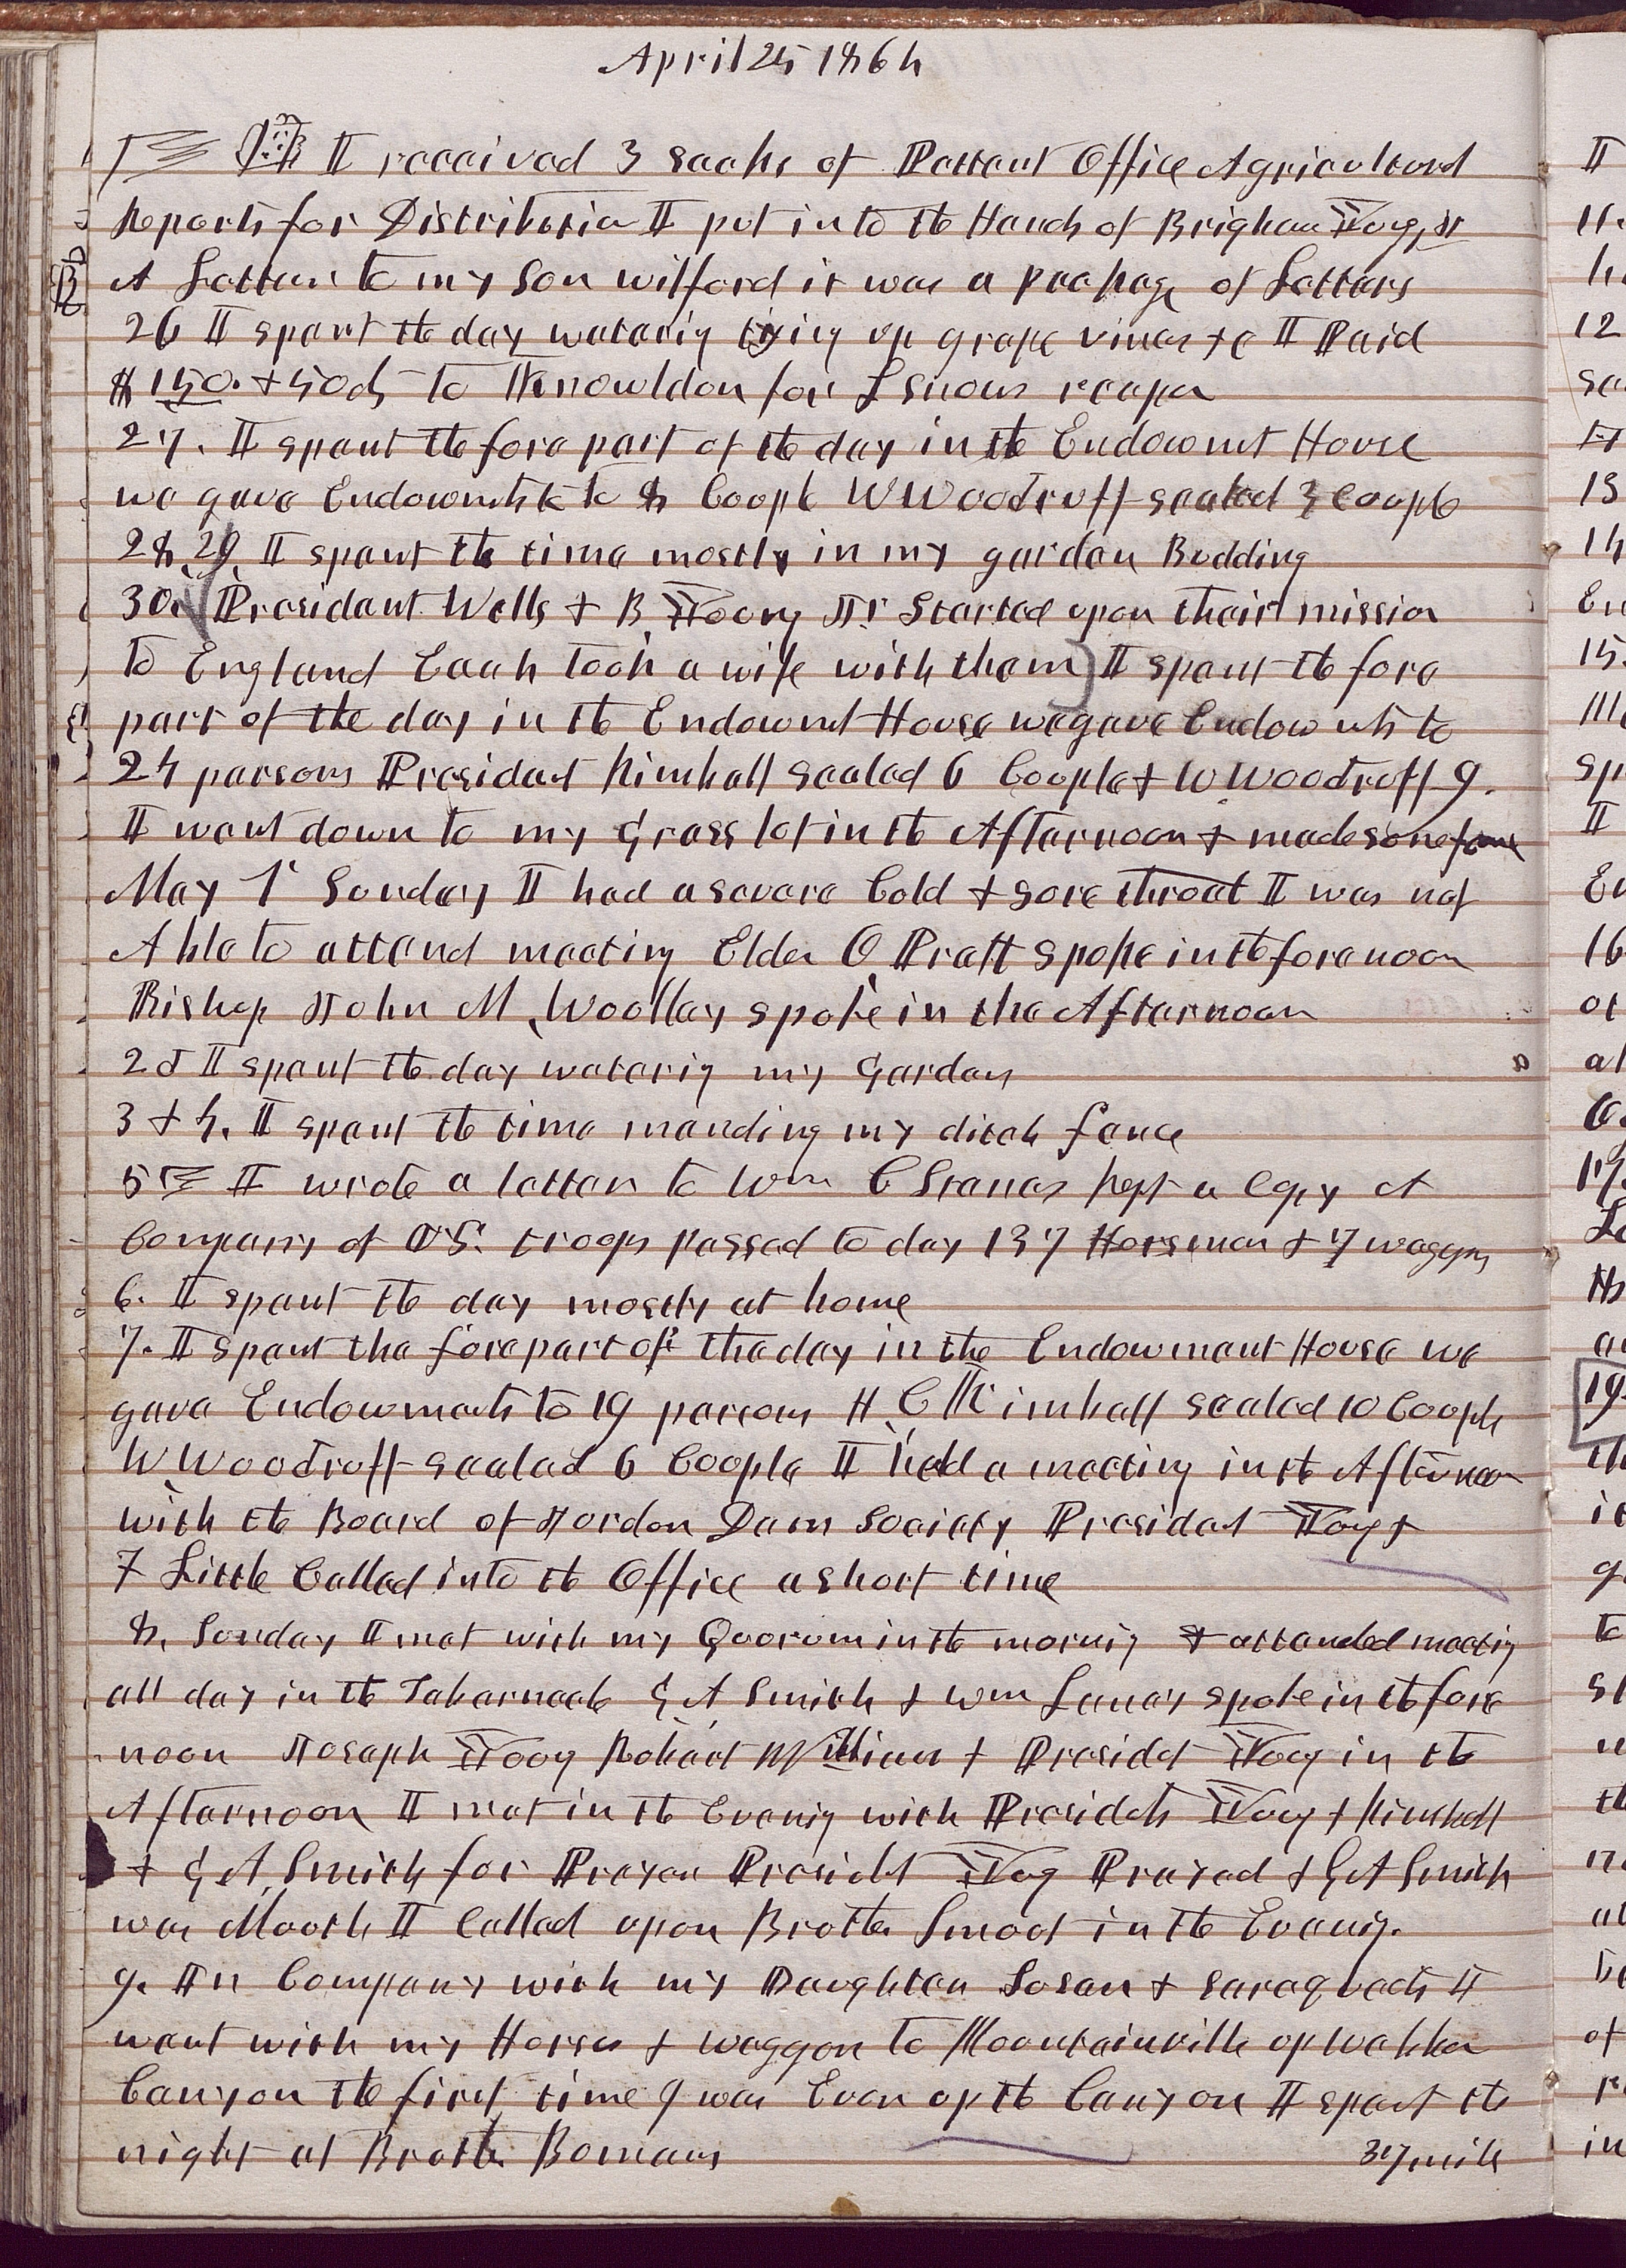 April 25 1864
I received 3 sacks of Pattent Office Agricultural
Reports for Distribution I put into the Hands of Brigham Young, Jr
A Letter to my Son Wilford it was a Package of Letters
26 I spent the day watering tying up grape vines &c I Paid
$150. & 50cts to Knowlden for L Snows reaper
27. I spent the fore part of the day in the Endowmet House
we gave Endowmts to 8 Couple W Woodruff sealed 3 Couple
28, 29, I spent the time mostly in my garden Budding
30. President Wells & B Young Jr. Started upon their mission
to England Each took a wife with them I spent the fore
part of the day in the Endowmet House we gave Endowmts to
24 persons President Kimball sealed 6 Couple & W Woodruff 9.
I went down to my Grass lot in the Afternoon & made some fence
May 1st Sunday I had a severe Cold & sore throat I was not
Able to attend meeting Elder O. Pratt spoke in the forenoon
Bishop John M, Woolley spoke in the Afternoon
2d I spent the day watering my Garden
3 & 4. I spent the time mending my ditch fence
5 I wrote a letter to Wm C Staines kept a Copy A
Company of US. troops passed to day 137 Horsmen & 7 waggons
6. I spent the day mostly at home
7. I spent the fore part of the day in the Endowment House we
gave Endowments to 19 persons H. C Kimball sealed 10 Couple
W Woodruff sealed 6 Couple I held a meeting in the Afternoon
with the Board of Jordon Dam Society Presidet Young &
F Little Called into the Office a short time
8. Sunday I met with my Quorum in the mornig & attended meetig
all day in the Tabernacle G A Smith & Wm Laney spoke in the fore
noon Joseph Young Robert Williams & Presidet Young in the
Afternoon I met in the Evenig with Presidets Young & Kimball
& G. A, Smith for Prayer Presidet Young Prayed & G A Smith
was Mouth I Called upon Brother Smoot in the Evenig.
9. In Company with my Daughter Susan & Sarag I
went with my Horses & waggon to Mountainville up
Canyon the first time I was Ever up the Canyon I spent the
night at Brother Bomans 37 mile